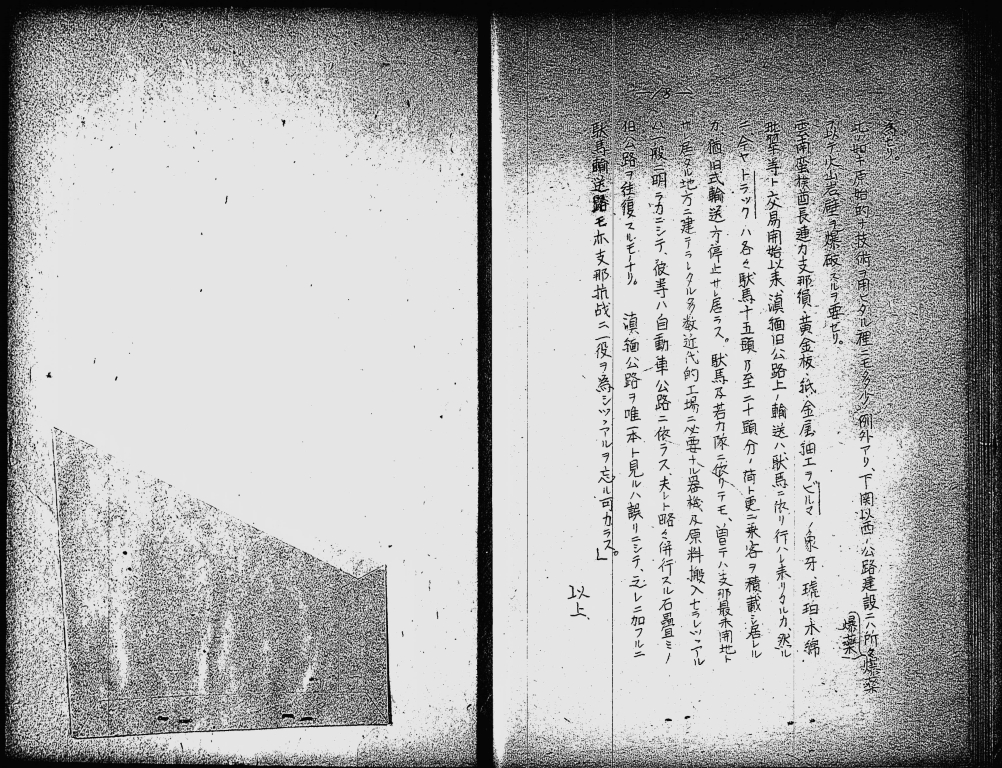 —13—
あせり。
此ノ如キ原始的ノ技術ヲ用ヒタル裡ニモ多少ノ例外アリ、下関以西ノ公路建設ニハ所々爆薬
爆薬
ヲ以テ火山岩壁ヲ爆破スルヲ要セリ。
雲南蛮族酋長連カ支那絹、黄金板、紙、金属細工ヲビルマノ象牙、琥珀、木綿
翡翠等ト交易開始以来、滇緬旧公路上ノ輸送ハ駄馬ニ依リ行ハレ来リタルカ、然ル
ニ今ヤトラックハ各々駄馬十五頭乃至二十頭分ノ荷ト更ニ乗客ヲ積載シ居レル
カ猶旧式輸送方停止サレ居ラス。駄馬及苦力隊ニ依リテモ、曾テハ支那最未開地ト
サレ居タル地方ニ建テラレタル多数近代的工場ニ必要ナル器械及原料搬入セラレツツアル
ハ一般ニ明ラカニシテ、彼等ハ自動車公路ニ依ラス、夫レト略々併行スル石畳ミノ
旧公路ヲ往復スルモノナリ。 滇緬公路ヲ唯一本ト見ルハ誤リニシテ、之レニ加フルニ
駄馬輸送路モ亦支那抗战ニ一役ヲ為シツツアルヲ忘ル可カラス。」
以上